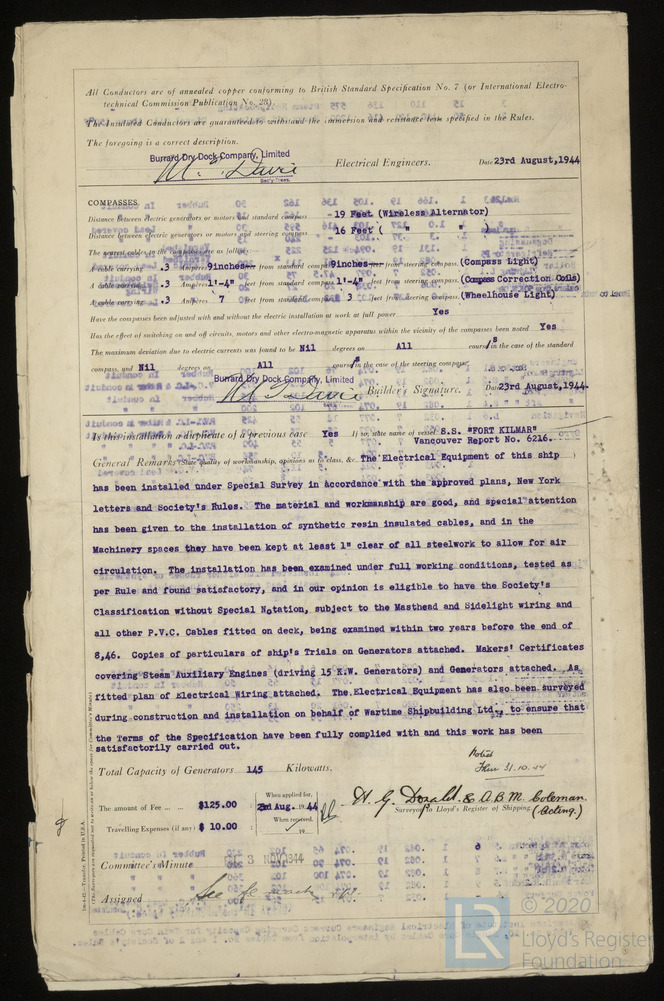 All Conductors are of annealed copper conforming to British Standard Specification No. 7 (or International Electro-
technical Commission Publication No. 28).
The Insulated Conductors are guaranteed to withstand the immersion and resistance tests specified in the Rules.
The foregoing is a correct description.
Burrard Dry Dock Company, Limited
Electrical Engineers. Date 23rd August, 1944
COMPASSES.
Distance between electric generators or motors and standard compass - 19 Feet (Wireless Alternator)
Distance between electric generators or motors and steering compass 16 Feet ( " " )
The nearest cables to the compasses are as follows:
A cable carrying .3 Ampères 9inches from standard compass 9inches from steering compass. (Compass Light)
A cable carrying .3 Ampères 1'-4" feet from standard compass 1'-4" feet from steering compass. (Compass Correction Coils)
A cable carrying .3 Ampères 7 feet from standard compass 3 feet from steering compass. (Wheelhouse Light)
Have the compasses been adjusted with and without the electric installation at work at full power Yes
Has the effect of switching on and off circuits, motors and other electro-magnetic apparatus within the vicinity of the compasses been noted Yes
The maximum deviation due to electric currents was found to be Nil degrees on All course/s in the case of the standard
compass, and Nil degrees on All course/s in the case of the steering compass.
Burrard Dry Dock Company, Limited
Builder's Signature. Date 23rd August, 1944.
Is this installation a duplicate of a previous case Yes If so, state name of vessel S.S. "FORT KILMAR"
Vancouver Report No. 6216.
General Remarks (State quality of workmanship, opinions as to class, &c. The Electrical Equipment of this ship )
has been installed under Special Survey in Accordance with the approved plans, New York
letters and Society's Rules. The material and workmanship are good, and special attention
has been given to the installation of synthetic resin insulated cables, and in the
Machinery spaces they have been kept at least 1" clear of all steelwork to allow for air
circulation. The installation has been examined under full working conditions, tested as
per Rule and found satisfactory, and in our opinion is eligible to have the Society's
Classification without Special Notation, subject to the Masthead and Sidelight wiring and
all other P.V.C. Cables fitted on deck, being examined within two years before the end of
8,46. Copies of particulars of ship's Trials on Generators attached. Makers' Certificates
covering Steam Auxiliary Engines (driving 15 K.W. Generators) and Generators attached. As
fitted plan of Electrical Wiring attached. The Electrical Equipment has also been surveyed
during construction and installation on behalf of Wartime Shipbuilding Ltd., to ensure that
the Terms of the Specification have been fully complied with and this work has been
satisfactorily carried out.
Noted
31.10.44
Total Capacity of Generators 145 Kilowatts.
The amount of Fee ... ... $125.00 : When applied for, 23rd Aug. 1944
Travelling Expenses (if any) $ 10.00 : When received, 19
H. G. Donald & A.B.M. Coleman.
Surveyor to Lloyd's Register of Shipping. (Acting.)
Committee's Minute 3 NOV 1944
Assigned See
© 2020
LR
Lloyd's Register
Foundation